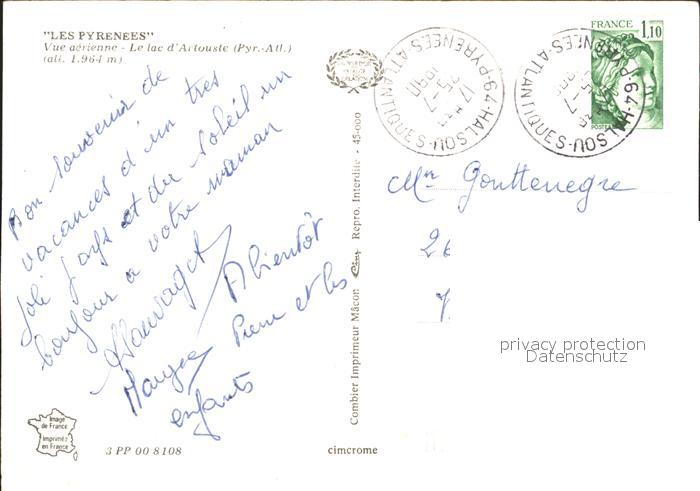 "LES PYRENEES"
Vue aérienne - Le lac d'Artouste (Pyr.-Atl.)
(alt. 1.964 m)
Bon souvenir de
vacances d'un tres
joli pays et du soleil un
bonjour a votre maman
A bientôt
Pierre et les
enfants
Image
de France
Imprimée
en France
3 PP 00 8108
cimcrome
Combier Imprimeur Mâcon Cim Repro. Interdite - 45-000
64-HALSOU-PYRENEES-ATLANTIQUES
17H
25-7
1980
64-HALSOU-PYRENEES-ATLANTIQUES
25-7
FRANCE
1,10
POSTES
Mr Gouttenegre
26
7
privacy protection
Datenschutz